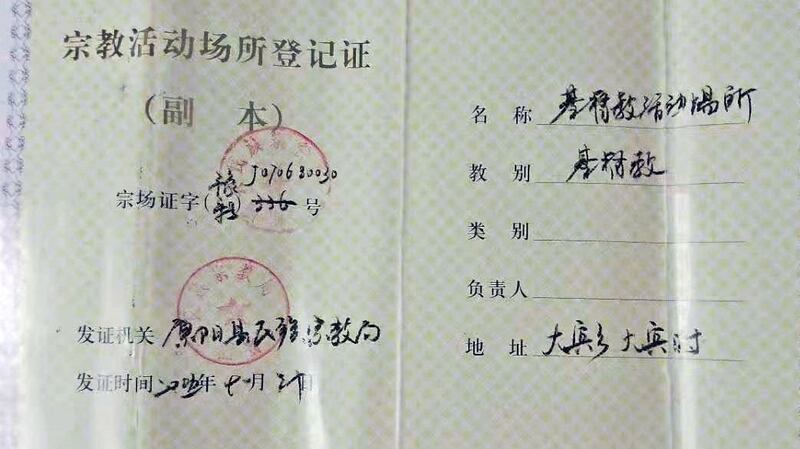 宗教活动场所登记证
(副 本)
J070630030
宗场证字(豫)号
发证机关 原阳县民族宗教局
发证时间 年十一月 日
名 称 基督教活动场所
教 别 基督教
类 别
负责人
地 址 大宾乡大宾村